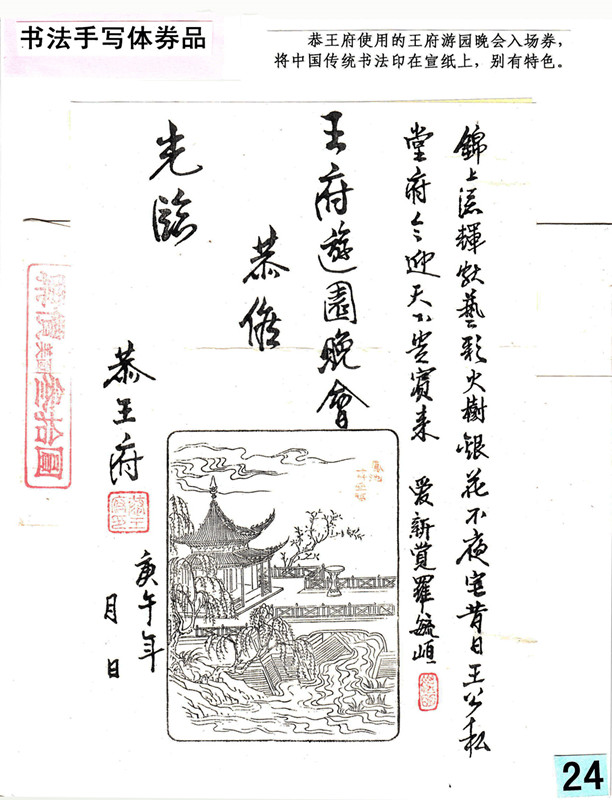 书法手写体券品
恭王府使用的王府游园晚会入场券，
将中国传统书法印在宣纸上，别有特色。
錦上流輝藝彩火樹銀花不夜宫昔日王公私
堂府今迎天下貴賓来 愛新覺羅毓峘
王府遊園晚會
恭候
光臨
恭王府
庚午年
月 日
叁拾圓
24